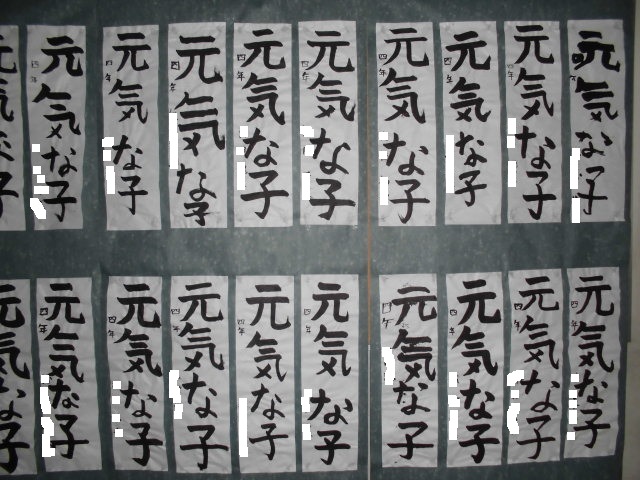 元気な子
四年
元気な子
四年
元気な子
四年
元気な子
四年
元気な子
四年
元気な子
四年
元気な子
四年
元気な子
四年
元気な子
四年
元気な子
元気な子
四年
元気な子
四年
元気な子
四年
元気な子
四年
元気な子
四年
元気な子
四年
元気な子
四年
元気な子
四年
元気な子
四年
元気な子